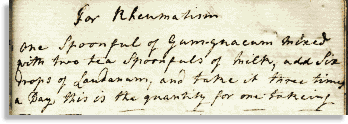 For Rheumatism
one Spoonful of Gumgnacum mixed
with two tea Spoonfuls of milk, add Six
drops of Laudanum, and take it three times
a Day, this is the quantity for one takeing